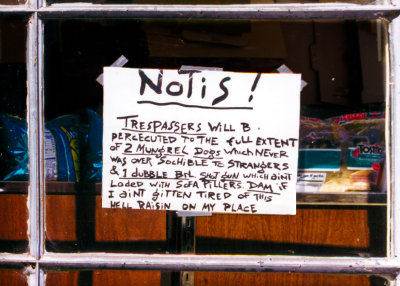 NOTIS!
TRESPASSERS WILL B
PERCECUTED TO THE FULL EXTENT
OF 2 MUNGREL DOGS WHICH NEVER
WAS OVER SOCHIBLE TO STRANGERS
& 1 DUBBLE BRL SHOT GUN WHICH AINT
LODED WITH SOFA PILLERS. DAM IF
I AINT GITTEN TIRED OF THIS
HELL RAISIN ON MY PLACE
TOSTITOS